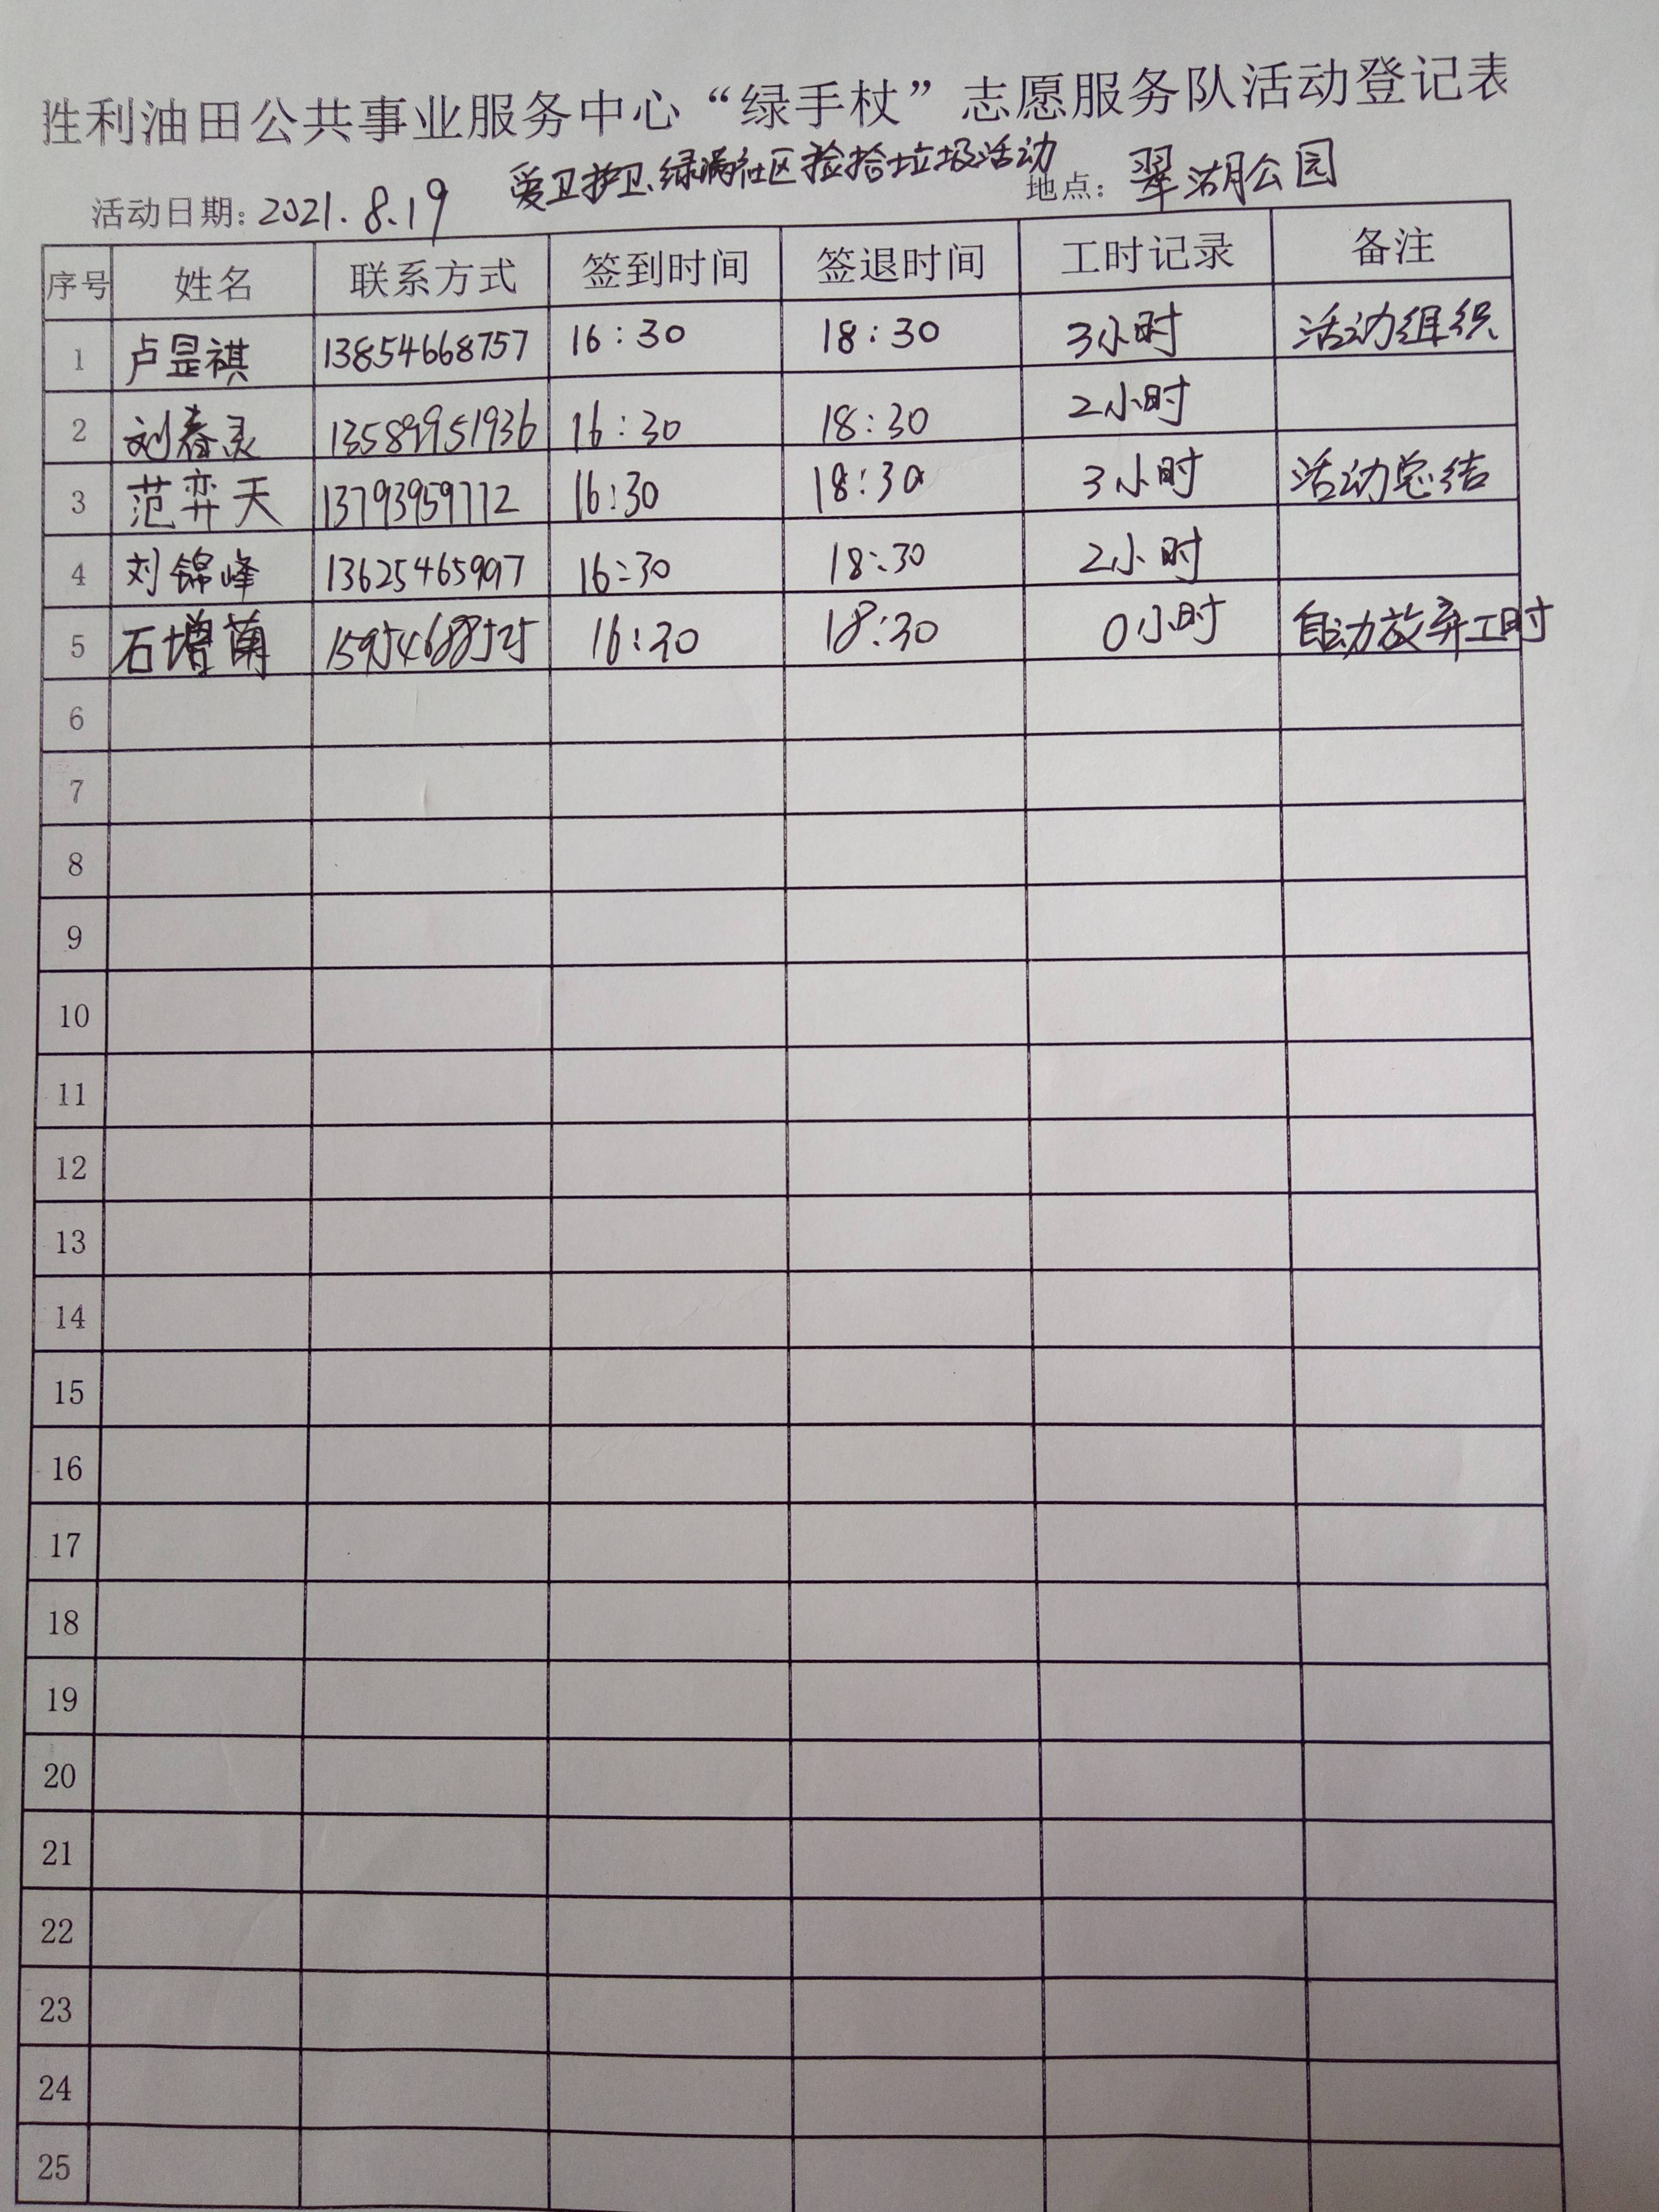 胜利油田公共事业服务中心“绿手杖”志愿服务队活动登记表
爱卫护卫、绿满社区捡拾垃圾活动
活动日期：2021.8.19 地点：翠湖公园
序号 姓名 联系方式 签到时间 签退时间 工时记录 备注
1 卢昱祺 13854668757 16:30 18:30 3小时 活动组织
2 刘春灵 13589951936 16:30 18:30 2小时
3 范弈天 13793959712 16:30 18:30 3小时 活动总结
4 刘锦峰 16:30 18:30 2小时
5 石增菊 15954688525 16:30 18:30 0小时 自动放弃工时
6
7
8
9
10
11
12
13
14
15
16
17
18
19
20
21
22
23
24
25